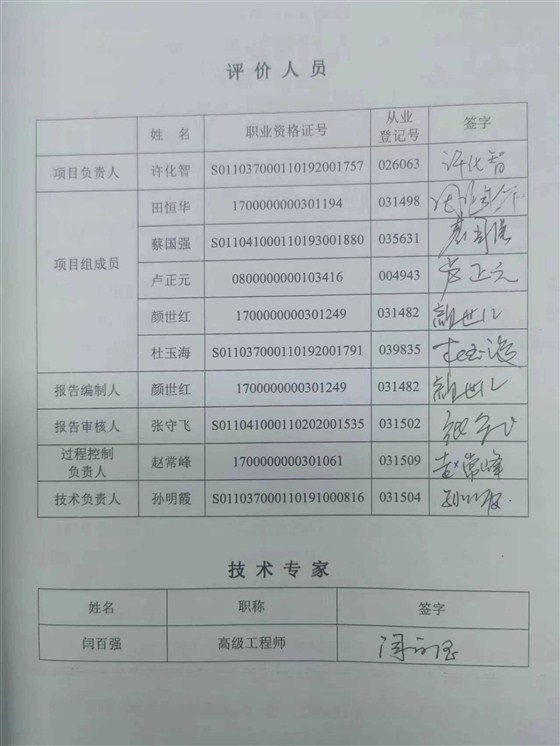 评价人员
姓 名 职业资格证号 从业登记号 签字
项目负责人 许化智 S011037000110192001757 026063 许化智
项目组成员 田恒华 1700000000301194 031498
蔡国强 S011041000110193001880 035631 蔡国强
卢正元 0800000000103416 004943 卢正元
颜世红 1700000000301249 031482 颜世红
杜玉海 S011037000110192001791 039835 杜玉海
报告编制人 颜世红 1700000000301249 031482 颜世红
报告审核人 张守飞 S011041000110202001535 031502
过程控制负责人 赵常峰 1700000000301061 031509 赵常峰
技术负责人 孙明霞 S011037000110191000816 031504
技术专家
姓名 职称 签字
闫百强 高级工程师